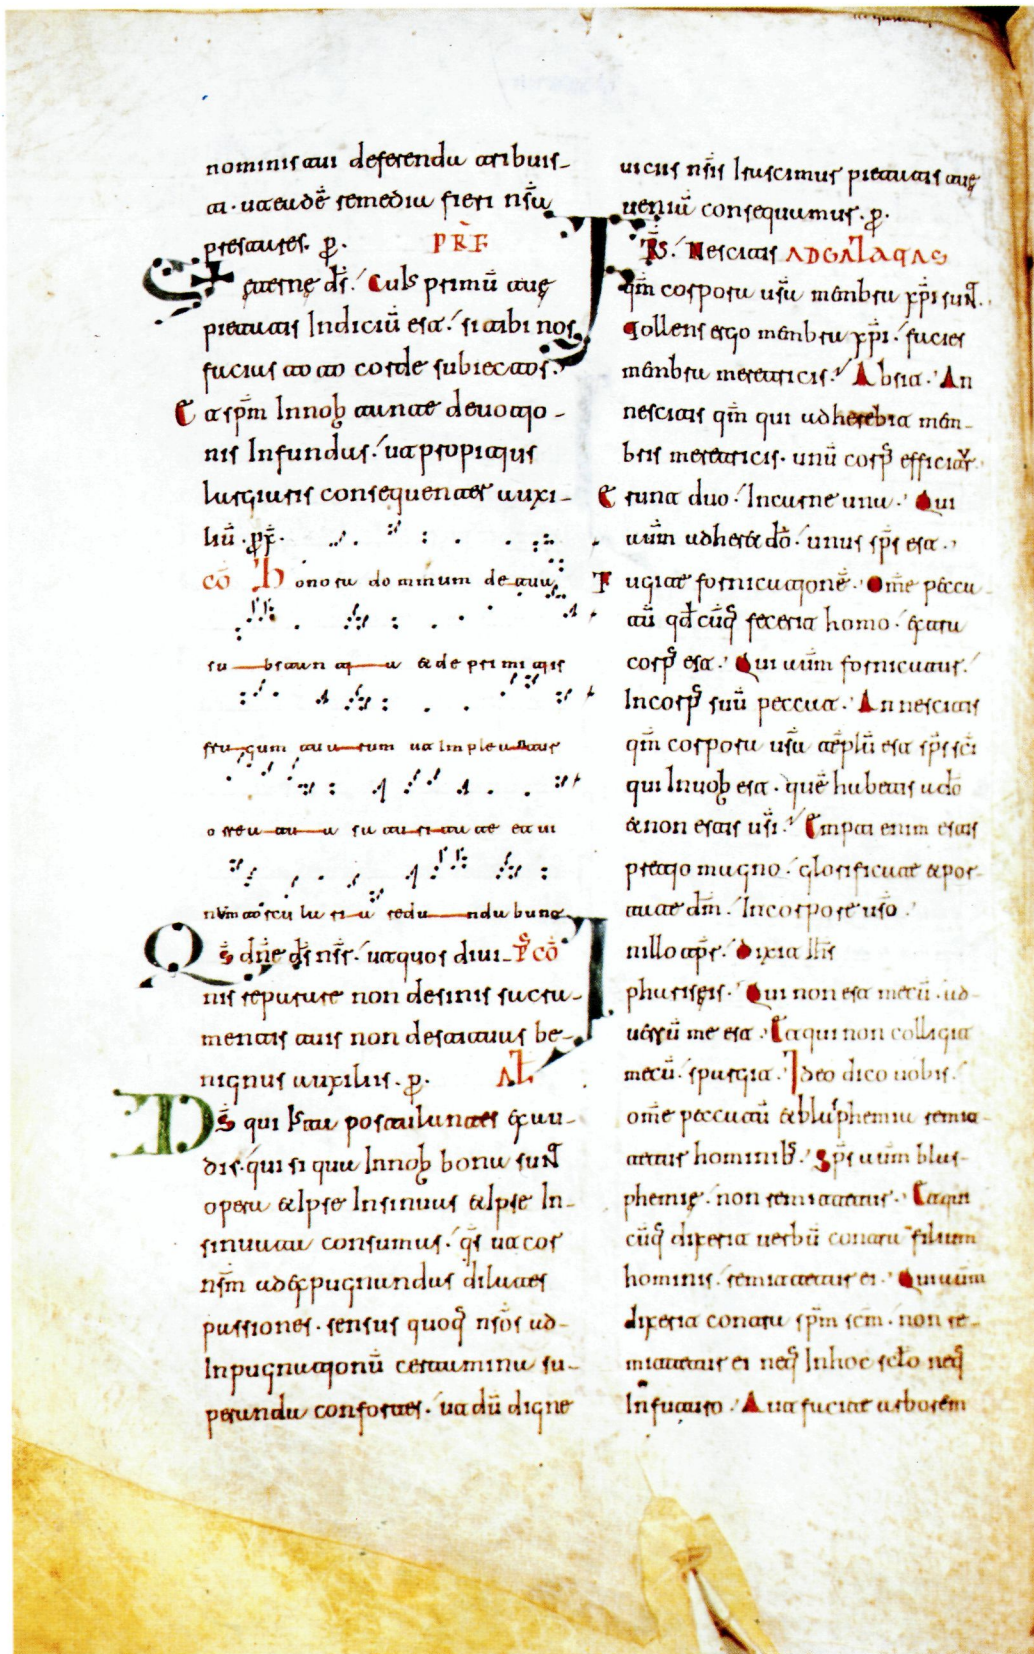 nominis tui deferenda tribuis-
ti · ut eadē remedia fieri nr̄a
prestares. p̄. PRF
ęterne ds̄. Cuiꝰ primū tuę
pietatis Indiciū est. si tibi nos
facias toto corde subiectos.
Et spm̄ Innob tante deuotio-
nis Infundas. ut propitius
largiaris consequenter auxi-
liū. p̄ x̄.
cō Honora dominum de tua
substantia et de primitiis
frugum tuarum ut Impleantur
orrea tua saturitate et ui
num torcularia redundabunt
Qs̄ dn̄e ds̄ nr̄. ut quos diui- P̄ CŌ
nis reparare non desinis sacra-
mentis tuis non destituas be-
nignus auxiliis. p̄. AL̄
Ds̄ qui postulantes exau-
dis. qui si qua Innob bona sunt
opera et Ipse Insinuas et Ipse In-
sinuata consumas. qs̄ ut cor
nsm̄ ad expugnandas
passiones. sensus quoq nsōs ad-
Inpugnationū certamina su-
peranda confortes. ut dū digne
uiciis nsīs Inscimus pietatis tuę
ueniā consequamus. p̄.
F̄RS. Nescitis AD GALATAS
qm̄ corpora usā menbra xp̄i sunt.
Tollens ergo menbra xp̄i. facies
menbra meretricis. Absit. An
nescitis qm̄ qui adherebit men-
bris meretricis. unū corp efficitur.
Erunt duo. Incarne una. Qui
autm̄ adheret dō. unus sps̄ est.
Fugite fornicationē. Ome pecca-
tū qd̄cūq fecerit homo. extra
corp est. Qui autm̄ fornicatur.
Incorp suū peccat. An nescitis
qm̄ corpora usā templū est sps̄ scī
qui Inuob est. quē habetis a dō
et non estis usī. Empti enim estis
pretio magno. glorificate et por-
tate dm̄. Incorpore usō.
Inillo tp̄r. Dixit Ihs̄
phariseis. Qui non est mecū. ad-
uersū me est. Et qui non colligit
mecū. spargit. Ideo dico uobis.
ome peccatū et blasphemia remit-
tetur hominib. Sps̄ autm̄ blas-
phemię. non remittetur. Et qui
cūq dixerit uerbū contra filium
hominis. remittetur ei. Qui autm̄
dixerit contra spm̄ scm̄. non re-
mittetur ei neq Inhoc sclō neq
Infuturo. Aut facite arborem